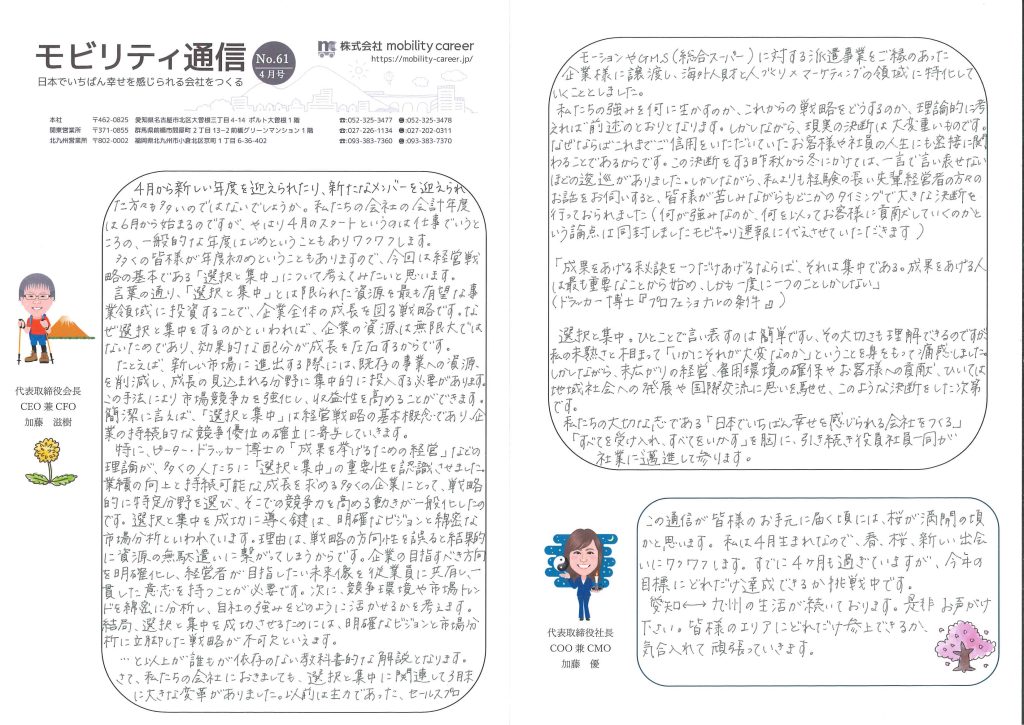 モビリティ通信
No.61
4月号
日本でいちばん幸せを感じられる会社をつくる
mc 株式会社 mobility career
https://mobility-career.jp/
本社 〒462-0825 愛知県名古屋市北区大曽根三丁目4-14 ポルト大曽根1階 ☎:052-325-3477 :052-325-3478
関東営業所 〒371-0855 群馬県前橋市問屋町2丁目13−2前橋グリーンマンション1階 ☎:027-226-1134 :027-202-0311
北九州営業所 〒802-0002 福岡県北九州市小倉北区京町1丁目6-36-402 ☎:093-383-7360 :093-383-7370
4月から新しい年度を迎えられたり、新たなメンバーを迎えられ
た方々も多いのではないでしょうか。私たちの会社の会計年度
は6月から始まるのですが、やはり4月のスタートというのは仕事でいうと
ころの、一般的な年度はじめということもありワクワクします。
多くの皆様が年度初めということもありますので、今回は経営戦
略の基本である「選択と集中」について考えてみたいと思います。
言葉の通り、「選択と集中」とは限られた資源を最も有望な事
業領域に投資することで、企業全体の成長を図る戦略です。な
ぜ選択と集中をするのかといわれれば、企業の資源は無限大では
ないためであり、効果的な配分が成長を左右するからです。
たとえば、新しい市場に進出する際には、既存の事業への資源
を削減し、成長の見込まれる分野に集中的に投入する必要があります。
この手法により市場競争力を強化し、収益性を高めることができます。
簡潔に言えば、「選択と集中」は経営戦略の基本概念であり、企
業の持続的な競争優位の確立に寄与していきます。
特に、ピーター・ドラッカー博士の「成果を挙げるための経営」などの
理論が、多くの人たちに「選択と集中」の重要性を認識させました。
業績の向上と持続可能な成長を求める多くの企業にとって、戦略
的に特定分野を選び、そこでの競争力を高める動きが一般化したの
です。選択と集中を成功に導く鍵は、明確なビジョンと綿密な
市場分析といわれています。理由は、戦略の方向性を誤ると結果的
に資源の無駄遣いに繋がってしまうからです。企業の目指すべき方向
を明確化し、経営者が目指したい未来像を従業員に共有し、一
貫した意志を持つことが必要です。次に、競争環境や市場トレン
ドを綿密に分析し、自社の強みをどのように活かせるかを考えます。
結局、選択と集中を成功させるためには、明確なビジョンと市場分
析に立脚した戦略が不可欠といえます。
…と以上が誰もが依存のない教科書的な解説となります。
さて、私たちの会社におきましても、選択と集中に関連して3月末
に大きな変革がありました。以前は主力であった、セールスプロ
代表取締役会長
CEO 兼 CFO
加藤 滋樹
モーションやGMS(総合スーパー)に対する派遣事業をご縁のあった
企業様に譲渡し、海外人財と人づくり×マーケティングの領域に特化して
いくこととしました。
私たちの強みを何に生かすのか、これからの戦略をどうするのか、理論的に考
えれば前述のとおりとなります。しかしながら、現実の決断は大変重いものです。
なぜならばこれまでご信用をいただいていたお客様や社員の人生にも密接に関
わることであるからです。この決断をする昨秋から冬にかけては、一言で言い表せない
ほどの逡巡がありました。しかしながら、私よりも経験の長い先輩経営者の方々の
お話をお伺いすると、皆様が苦しみながらもどこかのタイミングで大きな決断を
行っておられました(何が強みなのか、何を以ってお客様に貢献していくのかと
いう論点は同封しましたモビキャリ速報に代えさせていただきます)
「成果をあげる秘訣を一つだけあげるならば、それは集中である。成果をあげる人
は最も重要なことから始め、しかも一度に一つのことしかしない」
(ドラッカー博士『プロフェショナルの条件』)
選択と集中。ひとことで言い表すのは簡単ですし、その大切さも理解できるのですが、
私の未熟さと相まって「いかにそれが大変なのか」ということを身をもって痛感しました。
しかしながら、末広がりの経営、雇用環境の確保やお客様への貢献、ひいては
地域社会への発展や国際交流に思いを馳せ、このような決断をした次第
です。
私たちの大切な志である「日本でいちばん幸せを感じられる会社をつくる」
「すべてを受け入れ、すべてをいかす」を胸に、引き続き役員社員一同が
社業に邁進して参ります。
代表取締役社長
COO 兼 CMO
加藤 優
この通信が皆様のお手元に届く頃には、桜が満開の頃
かと思います。私は4月生まれなので、春、桜、新しい出会
いにワクワクします。すでに4ヶ月も過ぎていますが、今年の
目標にどれだけ達成できるか挑戦中です。
愛知⟷九州の生活が続いております。是非お声がけ
下さい。皆様のエリアにどれだけ参上できるか、
気合入れて頑張っていきます。